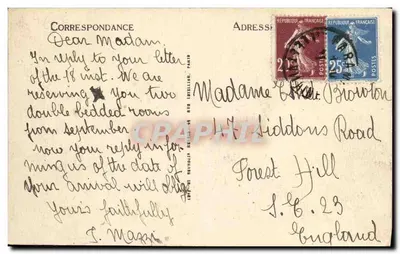 CORRESPONDANCE
Dear Madam,
In reply to your letter
of the 18 inst. We are
reserving you two
double bedded rooms
from september
now your reply in for
ming us of the date of
your arrival will oblige
Yours faithfully
J. Mazzi
ADRESSE
Madame Browton
17 Siddons Road
Forest Hill
S.E. 23
England
REPUBLIQUE FRANÇAISE
20c
POSTES
REPUBLIQUE FRANÇAISE
25c
POSTES
CPARAMA